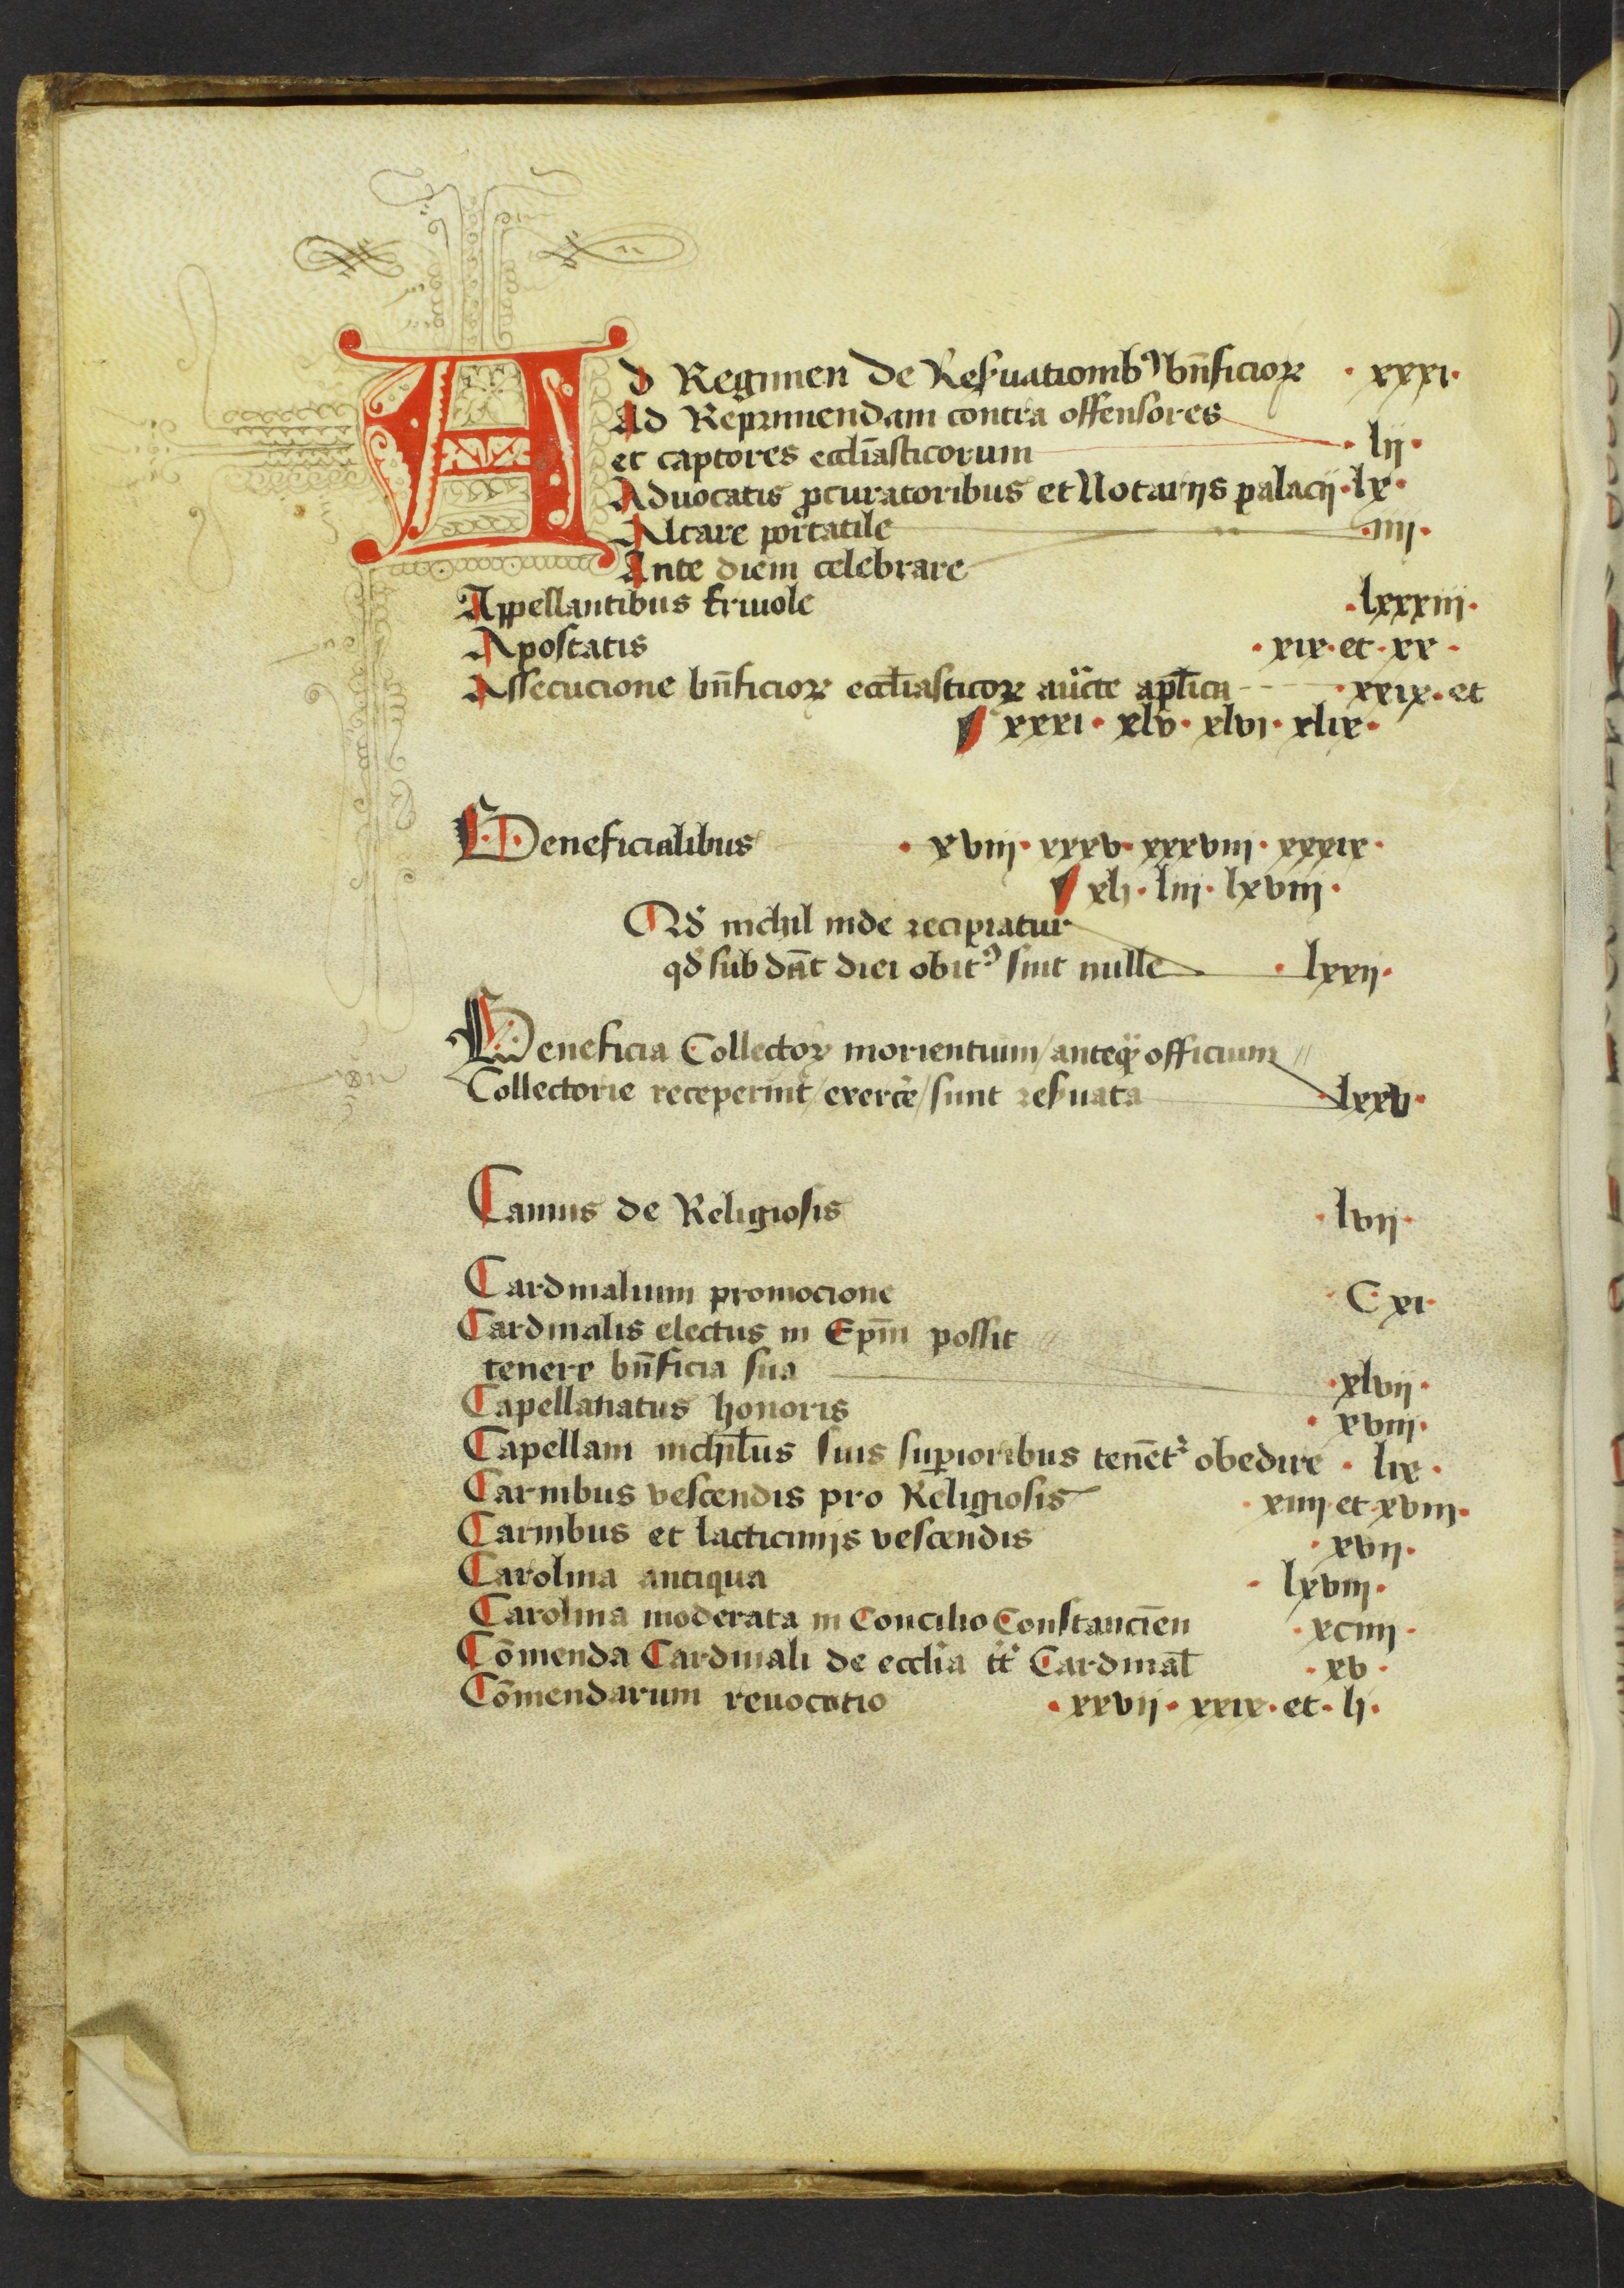 Ad Regimen de Reſuationibꝰ bn̄ficioꝝ · xxxi·
Ad Reprimendam contra offenſores
et captores eccl̄iaſticorum · lij ·
Aduocatis ꝓcuratoribus et Notarijs palacij · lx ·
Altare portatile · iiij ·
Ante diem celebrare
Appellantibus friuole · lxxxiij ·
Apoſtatis · xix · et · xx ·
Aſſecucione bn̄ficioꝝ eccl̄iaſticoꝝ aūcte apl̄ica · xxix · et
xxxi · xlv · xlvi · xlix ·
Beneficialibus · xviij · xxxv · xxxviij · xxxix ·
xlj · liij · lxviij ·
Qd̛ nichil inde recipiatur
qd̛ ſub dāt diei obitꝰ ſint nulle · lxxij ·
Beneficia Collectoꝝ morientium / anteqͣ officium //
Collectorie receperint / exerce̛ / ſunt reſuata · lxxv ·
Camus de Religioſis · lvij ·
Cardinalium promocione · C xi ·
Cardinalis electus in Ep̄m poſſit //
tenere bn̄ficia ſua · xlvij ·
Capellanatus honoris · xviij ·
Capellani nichil̄us ſuis ſuꝑioribus tenēt̛ obedire · lix ·
Carnibus veſcendis pro Religioſis · xiiij et xviij ·
Carnibus et lacticinijs veſcendis · xvij ·
Carolina antiqua · lxviij ·
Carolina moderata in Concilio Conſtanciēn · xciiij ·
Cōmenda Cardinali de eccl̄ia tt̛ Cardinal̄ · xv ·
Cōmendarum reuocatio · xxvij · xxix · et · lj ·